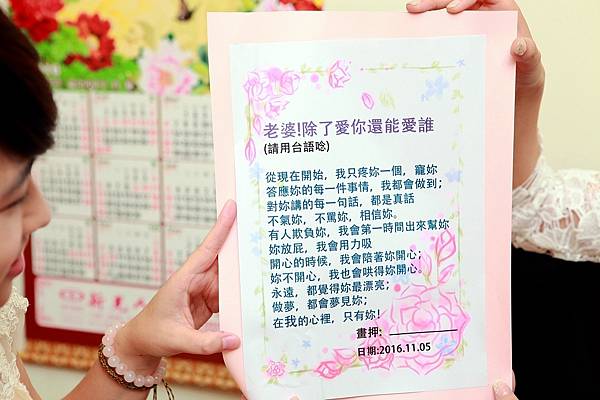 老婆!除了愛你還能愛誰
(請用台語唸)
從現在開始，我只疼妳一個，寵妳
答應妳的每一件事情，我都會做到；
對妳講的每一句話，都是真話
不氣妳，不罵妳，相信妳。
有人欺負妳，我會第一時間出來幫妳
妳放屁，我會用力吸
開心的時候，我會陪著妳開心；
妳不開心，我也會哄得妳開心。
永遠，都覺得妳最漂亮；
做夢，都會夢見妳；
在我的心裡，只有妳!
畫押:
日期:2016.11.05